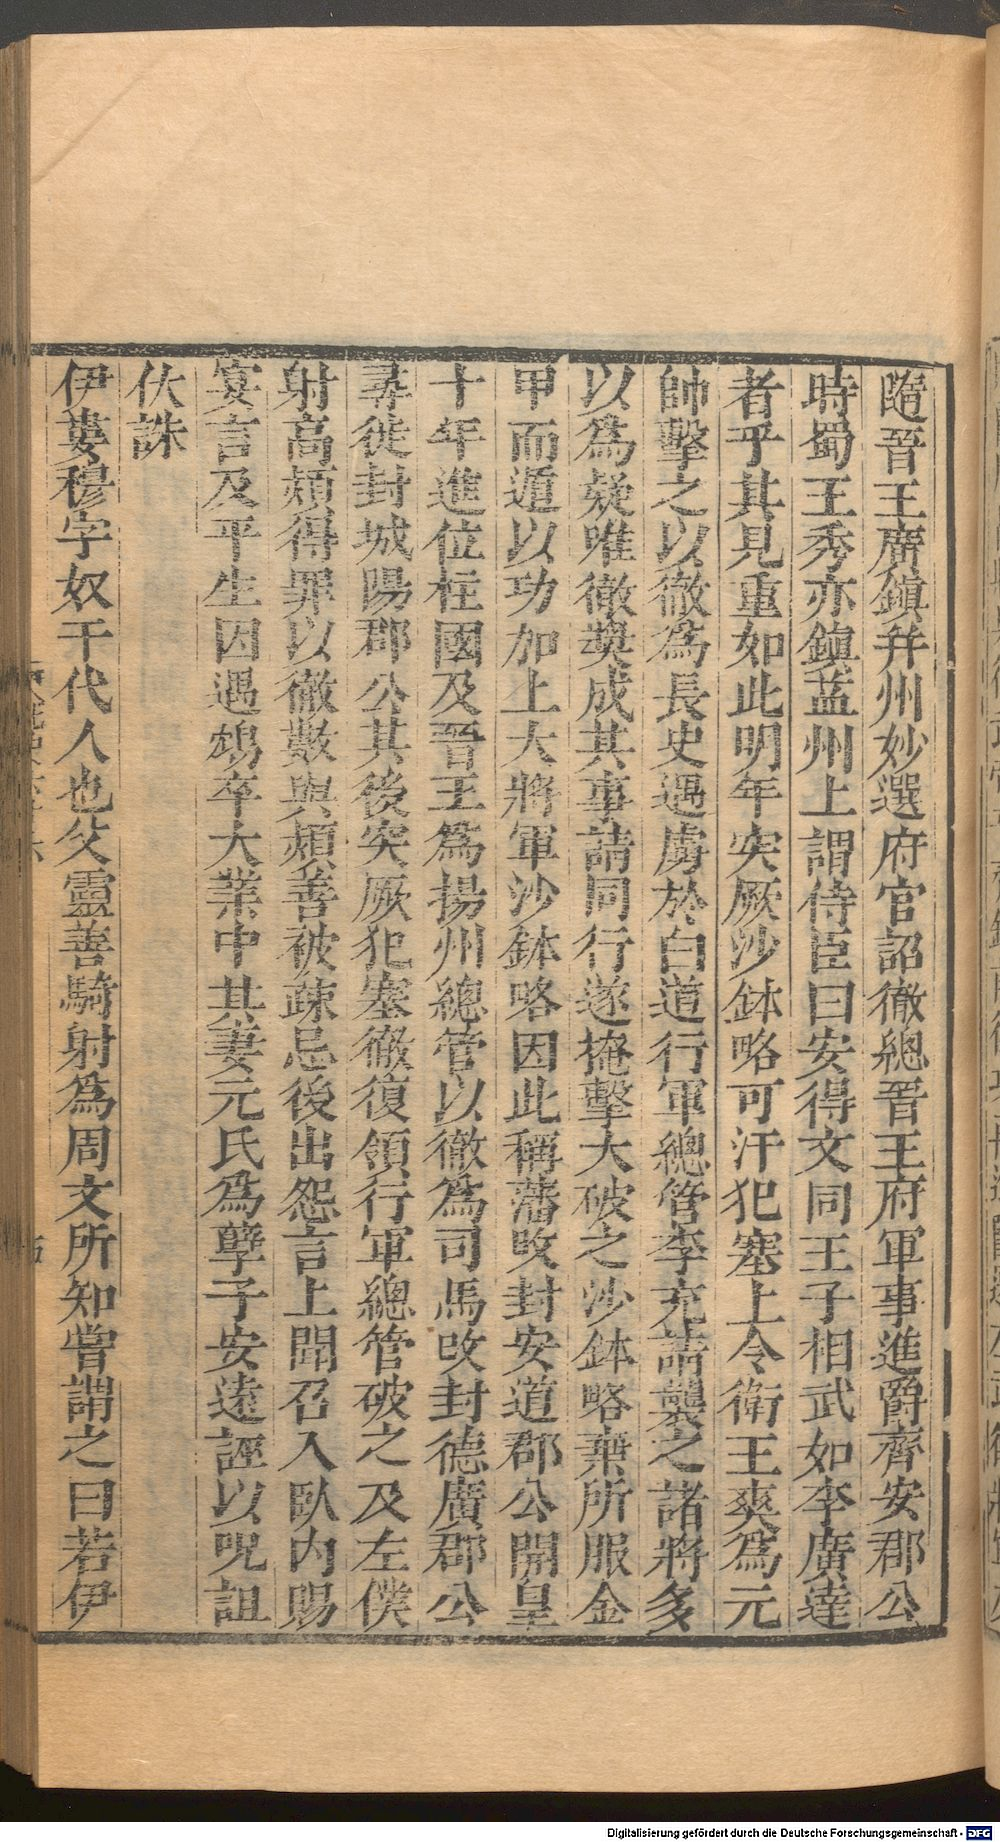 隨晉王廣鎮并州妙選府官詔徹總晉王府軍事進爵齊安郡公
時蜀王秀亦鎮益州上謂侍臣曰安得文同王子相武如李廣達
者乎其見重如此明年突厥沙鉢略可汗犯塞上令衛王爽為元
帥擊之以徹為長史遇虜於白道行軍總管李充請襲之諸將多
以為疑唯徹奬成其事請同行遂掩擊大破之沙鉢略棄所服金
甲而遁以功加上大將軍沙鉢略因此稱藩改封安道郡公開皇
十年進位柱國及晉王為揚州總管以徹為司馬改封德廣郡公
尋徙封城陽郡公其後突厥犯塞徹復領行軍總管破之及左僕
射高熲得罪以徹數與熲善被疎忌後出怨言上聞召入臥內賜
宴言及平生因遇鴆卒大業中其妻元氏為孽子安遠誣以呪詛
伏誅
伊婁穆字奴干代人也父靈善騎射為周文所知嘗謂之曰若伊